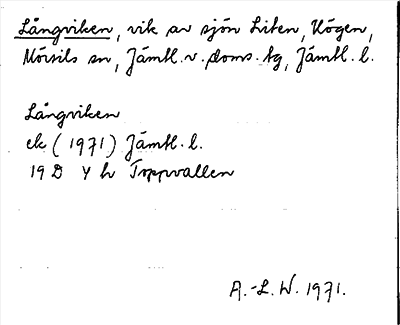 Långviken, vik av sjön Liten, Kögen,
Mörsils sn, Jämtl. v. doms. tg, Jämtl. l.
Långviken
ek (1971) Jämtl. l.
19 D Y h Toppvallen
A.-L. W. 1971.